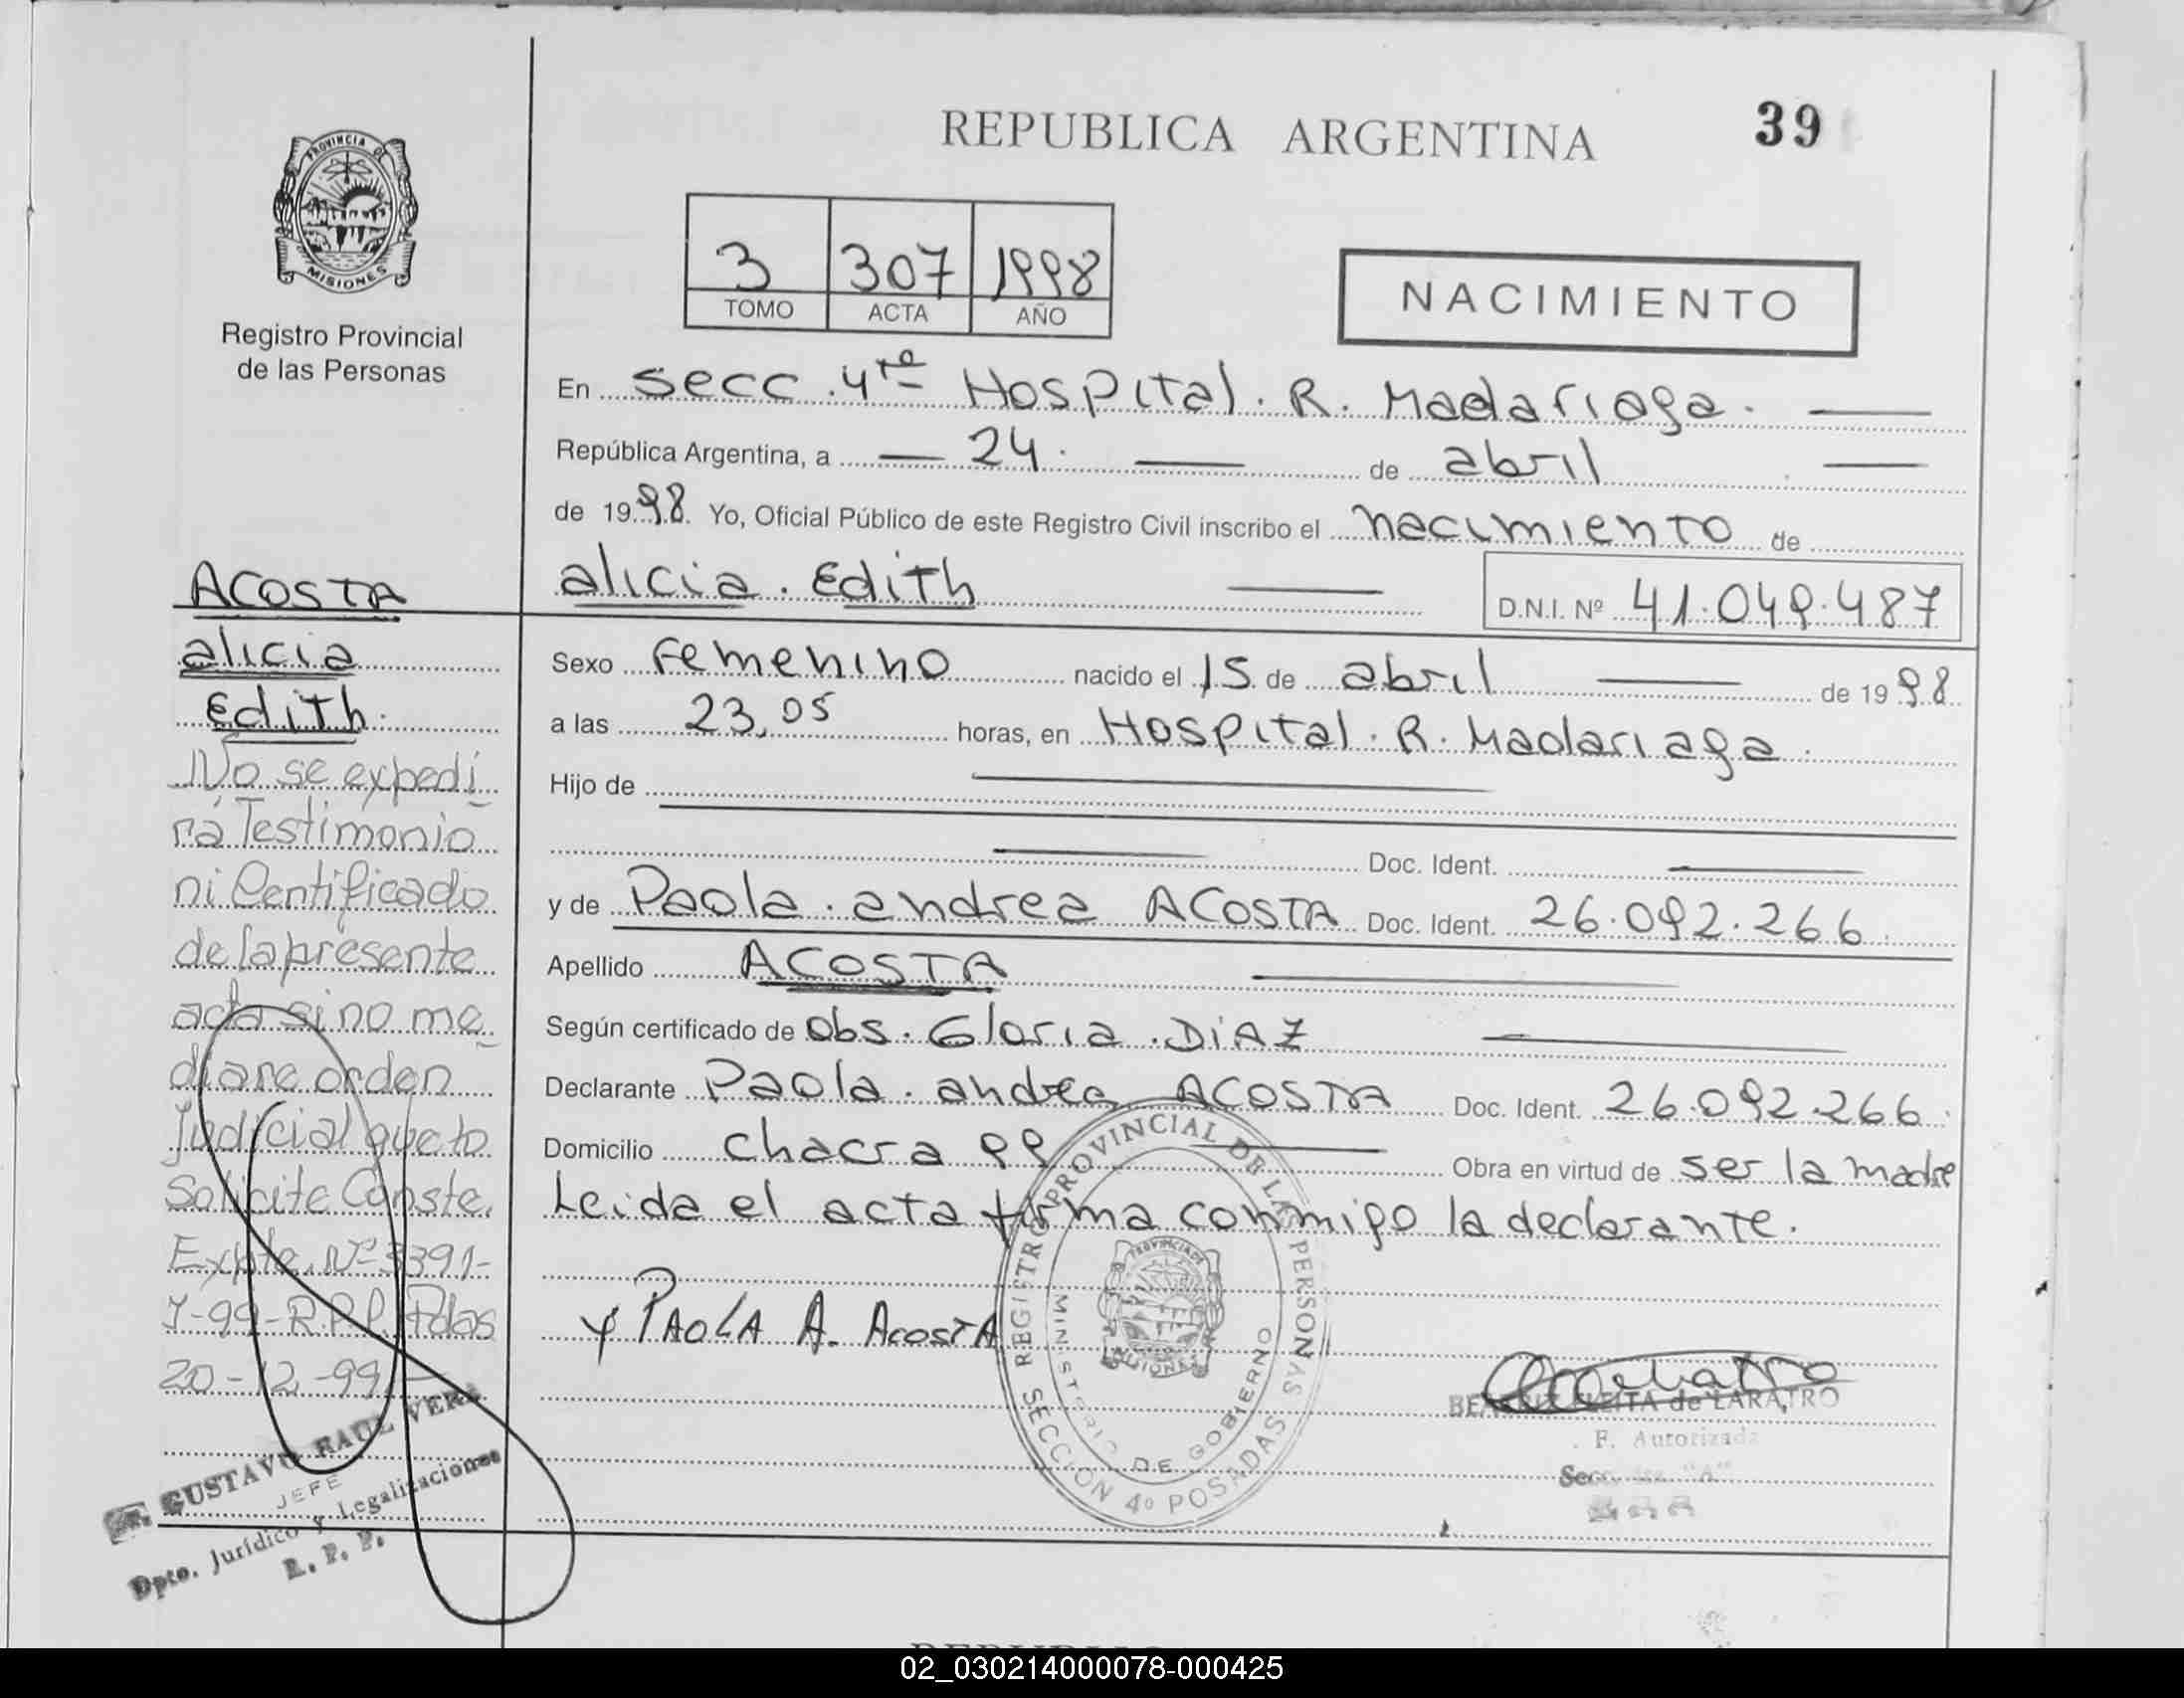 REPUBLICA ARGENTINA
39
PROVINCIA DE
MISIONES
Registro Provincial
de las Personas
3 307 1998
TOMO ACTA AÑO
NACIMIENTO
En Secc. 4ta Hospital. R. Madariaga.
República Argentina, a 24. de abril
de 1998. Yo, Oficial Público de este Registro Civil inscribo el nacimiento de
alicia. Edith D.N.I. Nº 41.049.487
Sexo Femenino nacido el 15. de abril de 1998
a las 23,05 horas, en Hospital. R. Madariaga.
Hijo de
Doc. Ident.
y de Paola. andrea ACOSTA Doc. Ident. 26.092.266.
Apellido ACOSTA
Según certificado de Obs. Gloria. DiAZ
Declarante Paola. andrea ACOSTA Doc. Ident. 26.092.266.
Domicilio chacra 99 Obra en virtud de ser la madre
Leida el acta firma conmigo la declarante.
y PAOLA A. ACOSTA
ACOSTA
alicia
Edith.
No se expedi
rá Testimonio
ni Certificado
de la presente
acta si no me
diare orden
Judicial que lo
Solicite Conste.
Expte. Nº 3391-
Y-99-R.P.P. Pdas
20-12-99
GUSTAVO RAUL VERA
JEFE
Dpto. Jurídico y Legalizaciones
R. P. P.
REGISTRO PROVINCIAL DE LAS PERSONAS
SECCIÓN 4º POSADAS
MINISTERIO DE GOBIERNO
PROVINCIA DE
MISIONES
BEATRIZ FLEITA de LARATRO
F. Autorizada
Secc. "A"
02_030214000078-000425